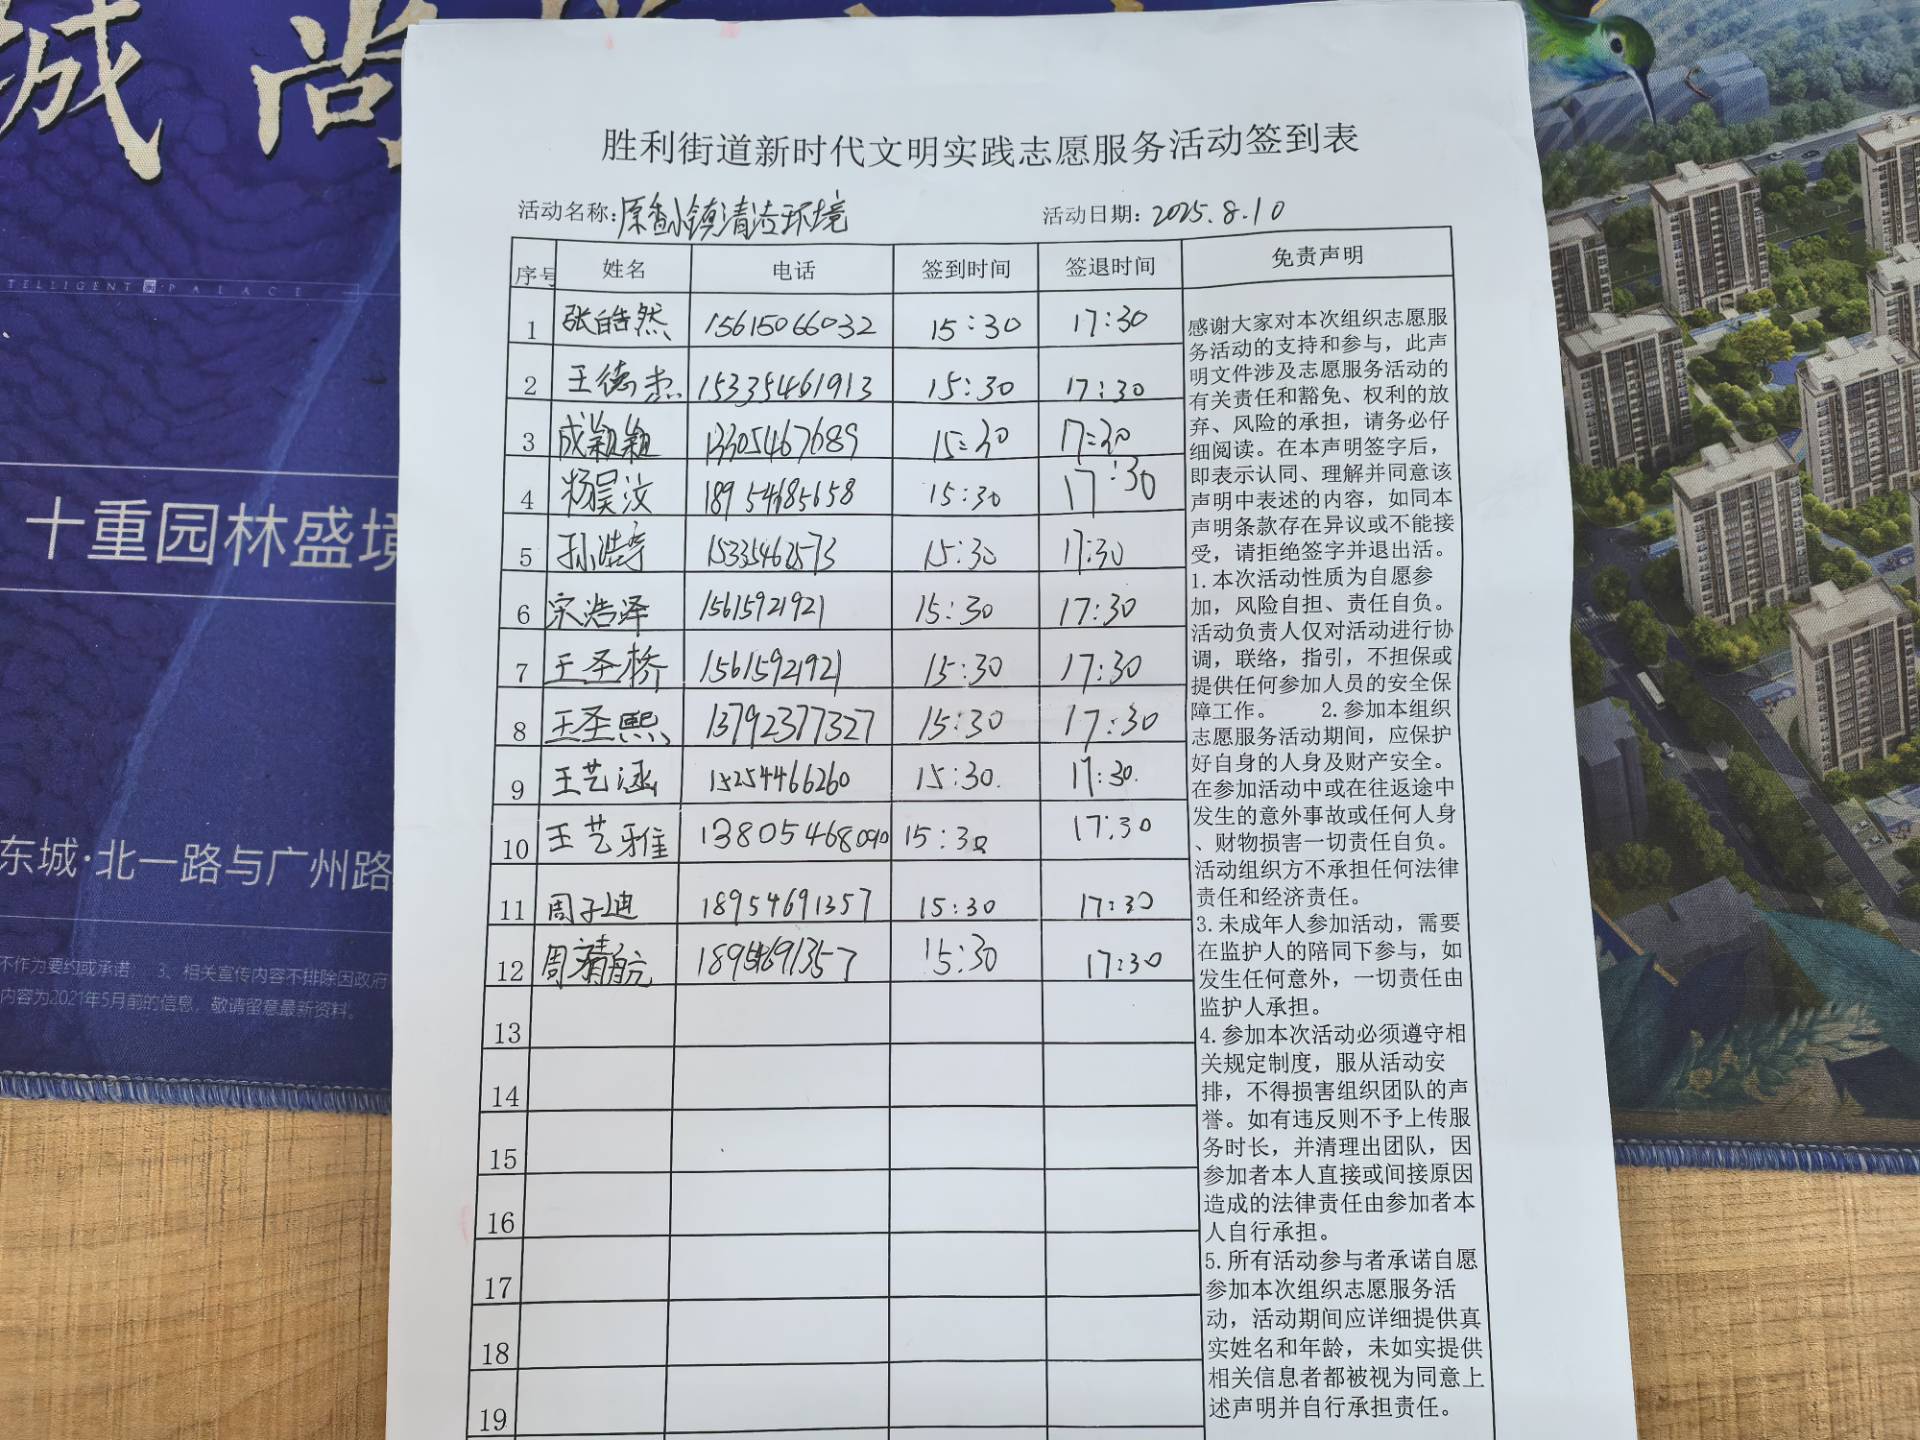 城 尚
TELLIGENT PALACE
十重园林盛境
东城·北一路与广州路
不作为要约或承诺; 3、相关宣传内容不排除因政府
内容为2021年5月前的信息, 敬请留意最新资料。
胜利街道新时代文明实践志愿服务活动签到表
活动名称: 原香小镇清洁环境 活动日期: 2025.8.10
序号 姓名 电话 签到时间 签退时间 免责声明
1 张皓然 15615066032 15:30 17:30
2 王德杰 15335461913 15:30 17:30
3 成颖颖 13305467689 15:30 17:30
4 杨昊汶 18954685658 15:30 17:30
5 孙浩宇 15335462573 15:30 17:30
6 宋浩泽 15615921921 15:30 17:30
7 王圣桥 15615921921 15:30 17:30
8 王圣熙 13792377327 15:30 17:30
9 王艺涵 15254466260 15:30. 17:30.
10 王艺雅 13805468090 15:30 17:30
11 周子迪 18954691357 15:30 17:30
12 周靖航 18954691357 15:30 17:30
13
14
15
16
17
18
19
感谢大家对本次组织志愿服
务活动的支持和参与, 此声
明文件涉及志愿服务活动的
有关责任和豁免、权利的放
弃、风险的承担, 请务必仔
细阅读。在本声明签字后,
即表示认同、理解并同意该
声明中表述的内容, 如同本
声明条款存在异议或不能接
受, 请拒绝签字并退出活。
1.本次活动性质为自愿参
加, 风险自担、责任自负。
活动负责人仅对活动进行协
调, 联络, 指引, 不担保或
提供任何参加人员的安全保
障工作。 2.参加本组织
志愿服务活动期间, 应保护
好自身的人身及财产安全。
在参加活动中或在往返途中
发生的意外事故或任何人身
、财物损害一切责任自负。
活动组织方不承担任何法律
责任和经济责任。
3.未成年人参加活动, 需要
在监护人的陪同下参与, 如
发生任何意外, 一切责任由
监护人承担。
4.参加本次活动必须遵守相
关规定制度, 服从活动安
排, 不得损害组织团队的声
誉。如有违反则不予上传服
务时长, 并清理出团队, 因
参加者本人直接或间接原因
造成的法律责任由参加者本
人自行承担。
5.所有活动参与者承诺自愿
参加本次组织志愿服务活
动, 活动期间应详细提供真
实姓名和年龄, 未如实提供
相关信息者都被视为同意上
述声明并自行承担责任。